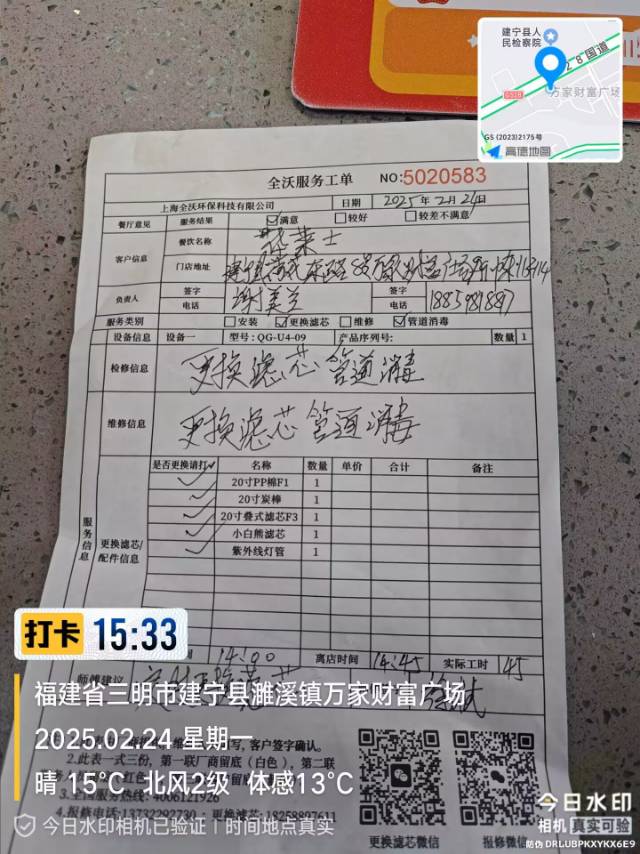 建宁县人
民检察院
528国道
G528
万家财富广场
GS (2023)2175号
高德地图
全沃服务工单 NO:5020583
上海全沃环保科技有限公司 日期 2025年2月24日
餐厅意见 服务结果 满意 较好 较差不满意
客户信息 餐饮名称 莱士
门店地址
负责人 签字 谢美兰 签字
电话 电话
服务类别 安装 更换滤芯 维修 管道消毒
设备信息 设备一 型号: QG-U4-09 产品序列号: 数量 1
检修信息 更换滤芯 管道消毒
维修信息 更换滤芯 管道消毒
服务信息 更换滤芯/配件信息
是否更换请打✓ 名称 数量 单价 合计 备注
✓ 20寸PP棉F1 1
✓ 20寸炭棒 1
✓ 20寸叠式滤芯F3 1
✓ 小白熊滤芯 1
✓ 紫外线灯管 1
14:00 离店时间 14:45 实际工时 45
师傅建议
打卡 15:33
福建省三明市建宁县濉溪镇万家财富广场
2025.02.24 星期一
晴 15°C 北风2级 体感13°C
写, 客户签字确认。
2.此表一式三份, 第一联厂商留底 (白色), 第二联
3.全国服务热线: 4006121926
4.报修电话: 13732292730 更换滤芯: 18258897611
更换滤芯微信 报修微信
今日水印相机已验证 | 时间地点真实
今日水印
相机 真实可验
防伪 DRLUBPKXYKX6E9